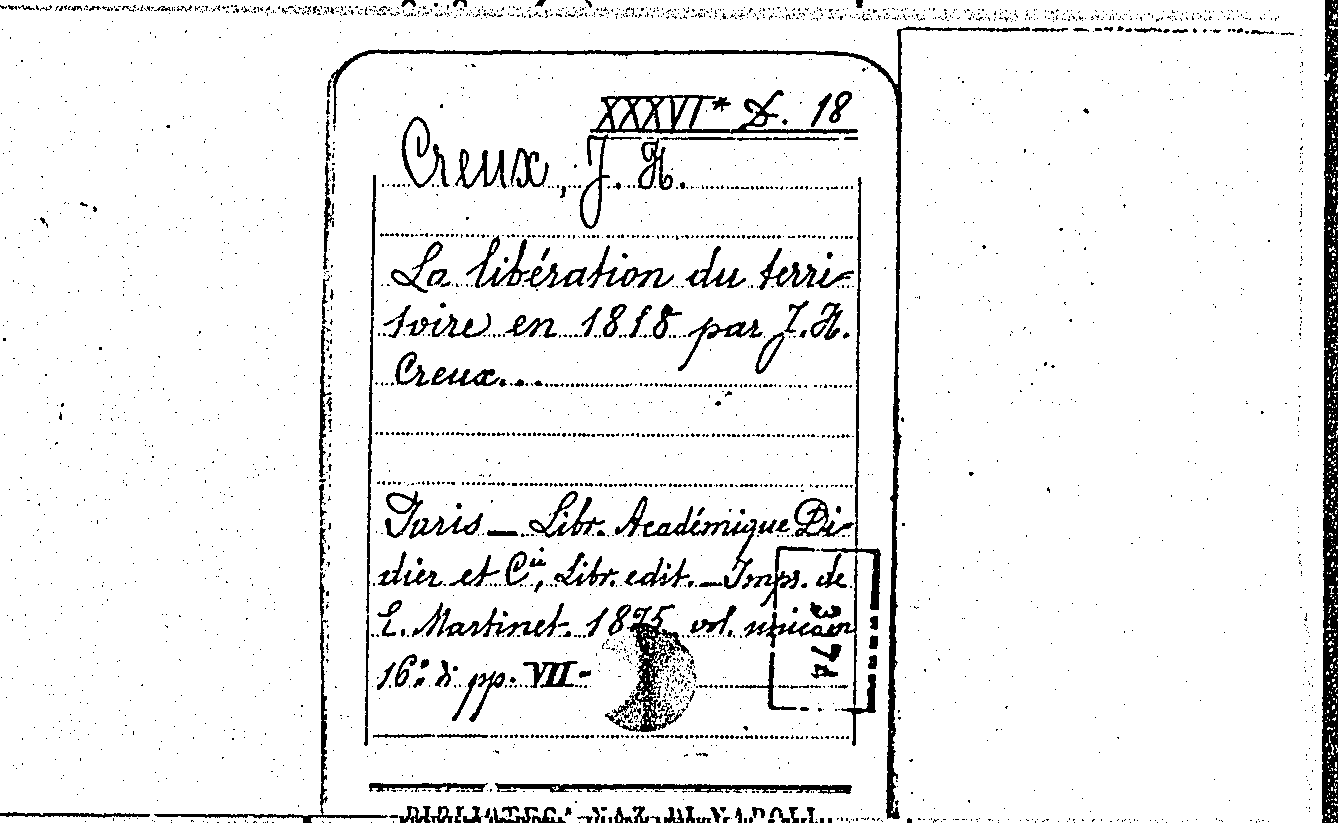 XXXVI* D. 18
Creux, J. H.
La libération du terri-
toire en 1818 par J. H.
Creux...
Paris _ Libr. Académique Di-
dier et Cie, Libr. edit. _ Imps. de
E. Martinet. 1875 vol. unic in
16º di pp. VII-
BIBLIOTECA NAZ. DI NAPOLI